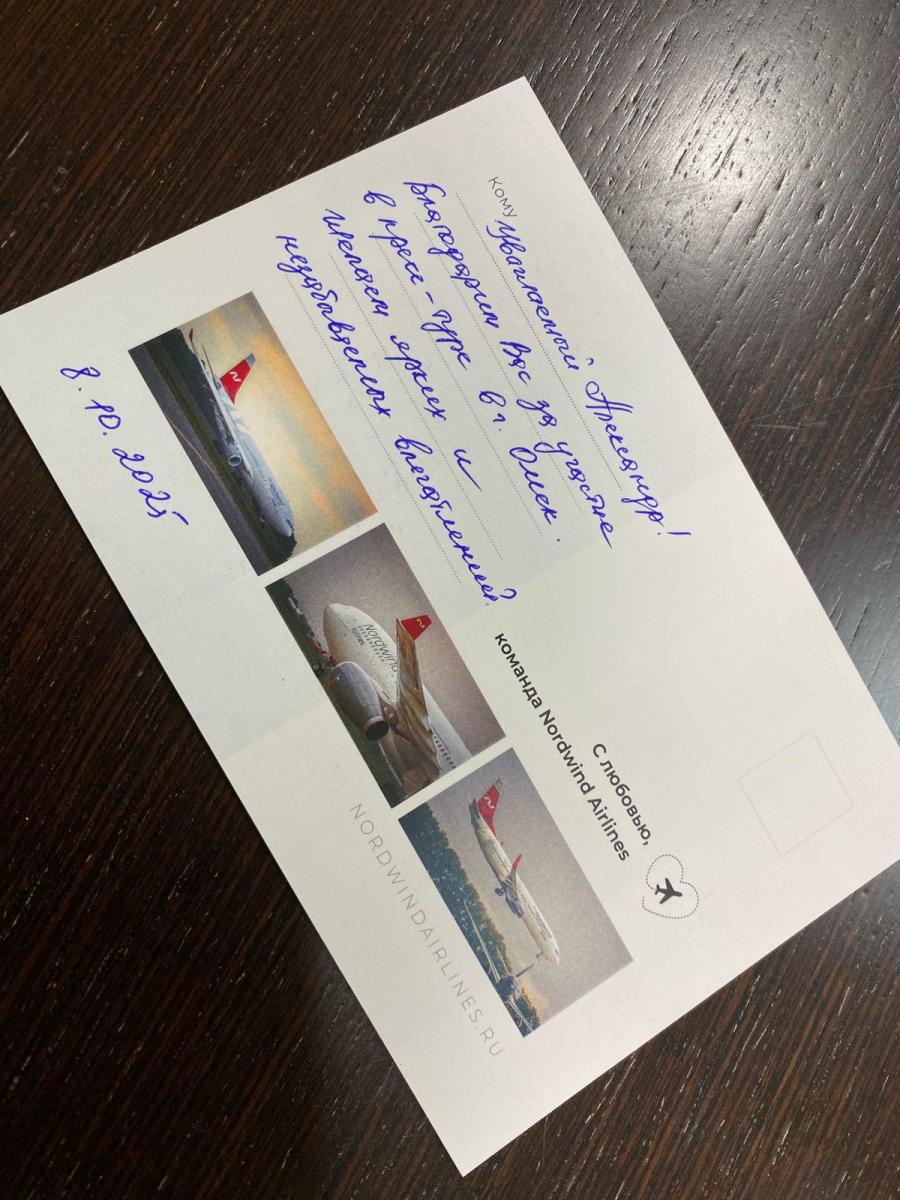 Кому Уважаемый Александр!
Благодарим Вас за участие
в пресс-туре в г. Омск.
Желаем ярких и
незабываемых впечатлений!
С любовью,
команда Nordwind Airlines
8.10.2025
Nordwind
Airlines
NORDWINDAIRLINES.RU